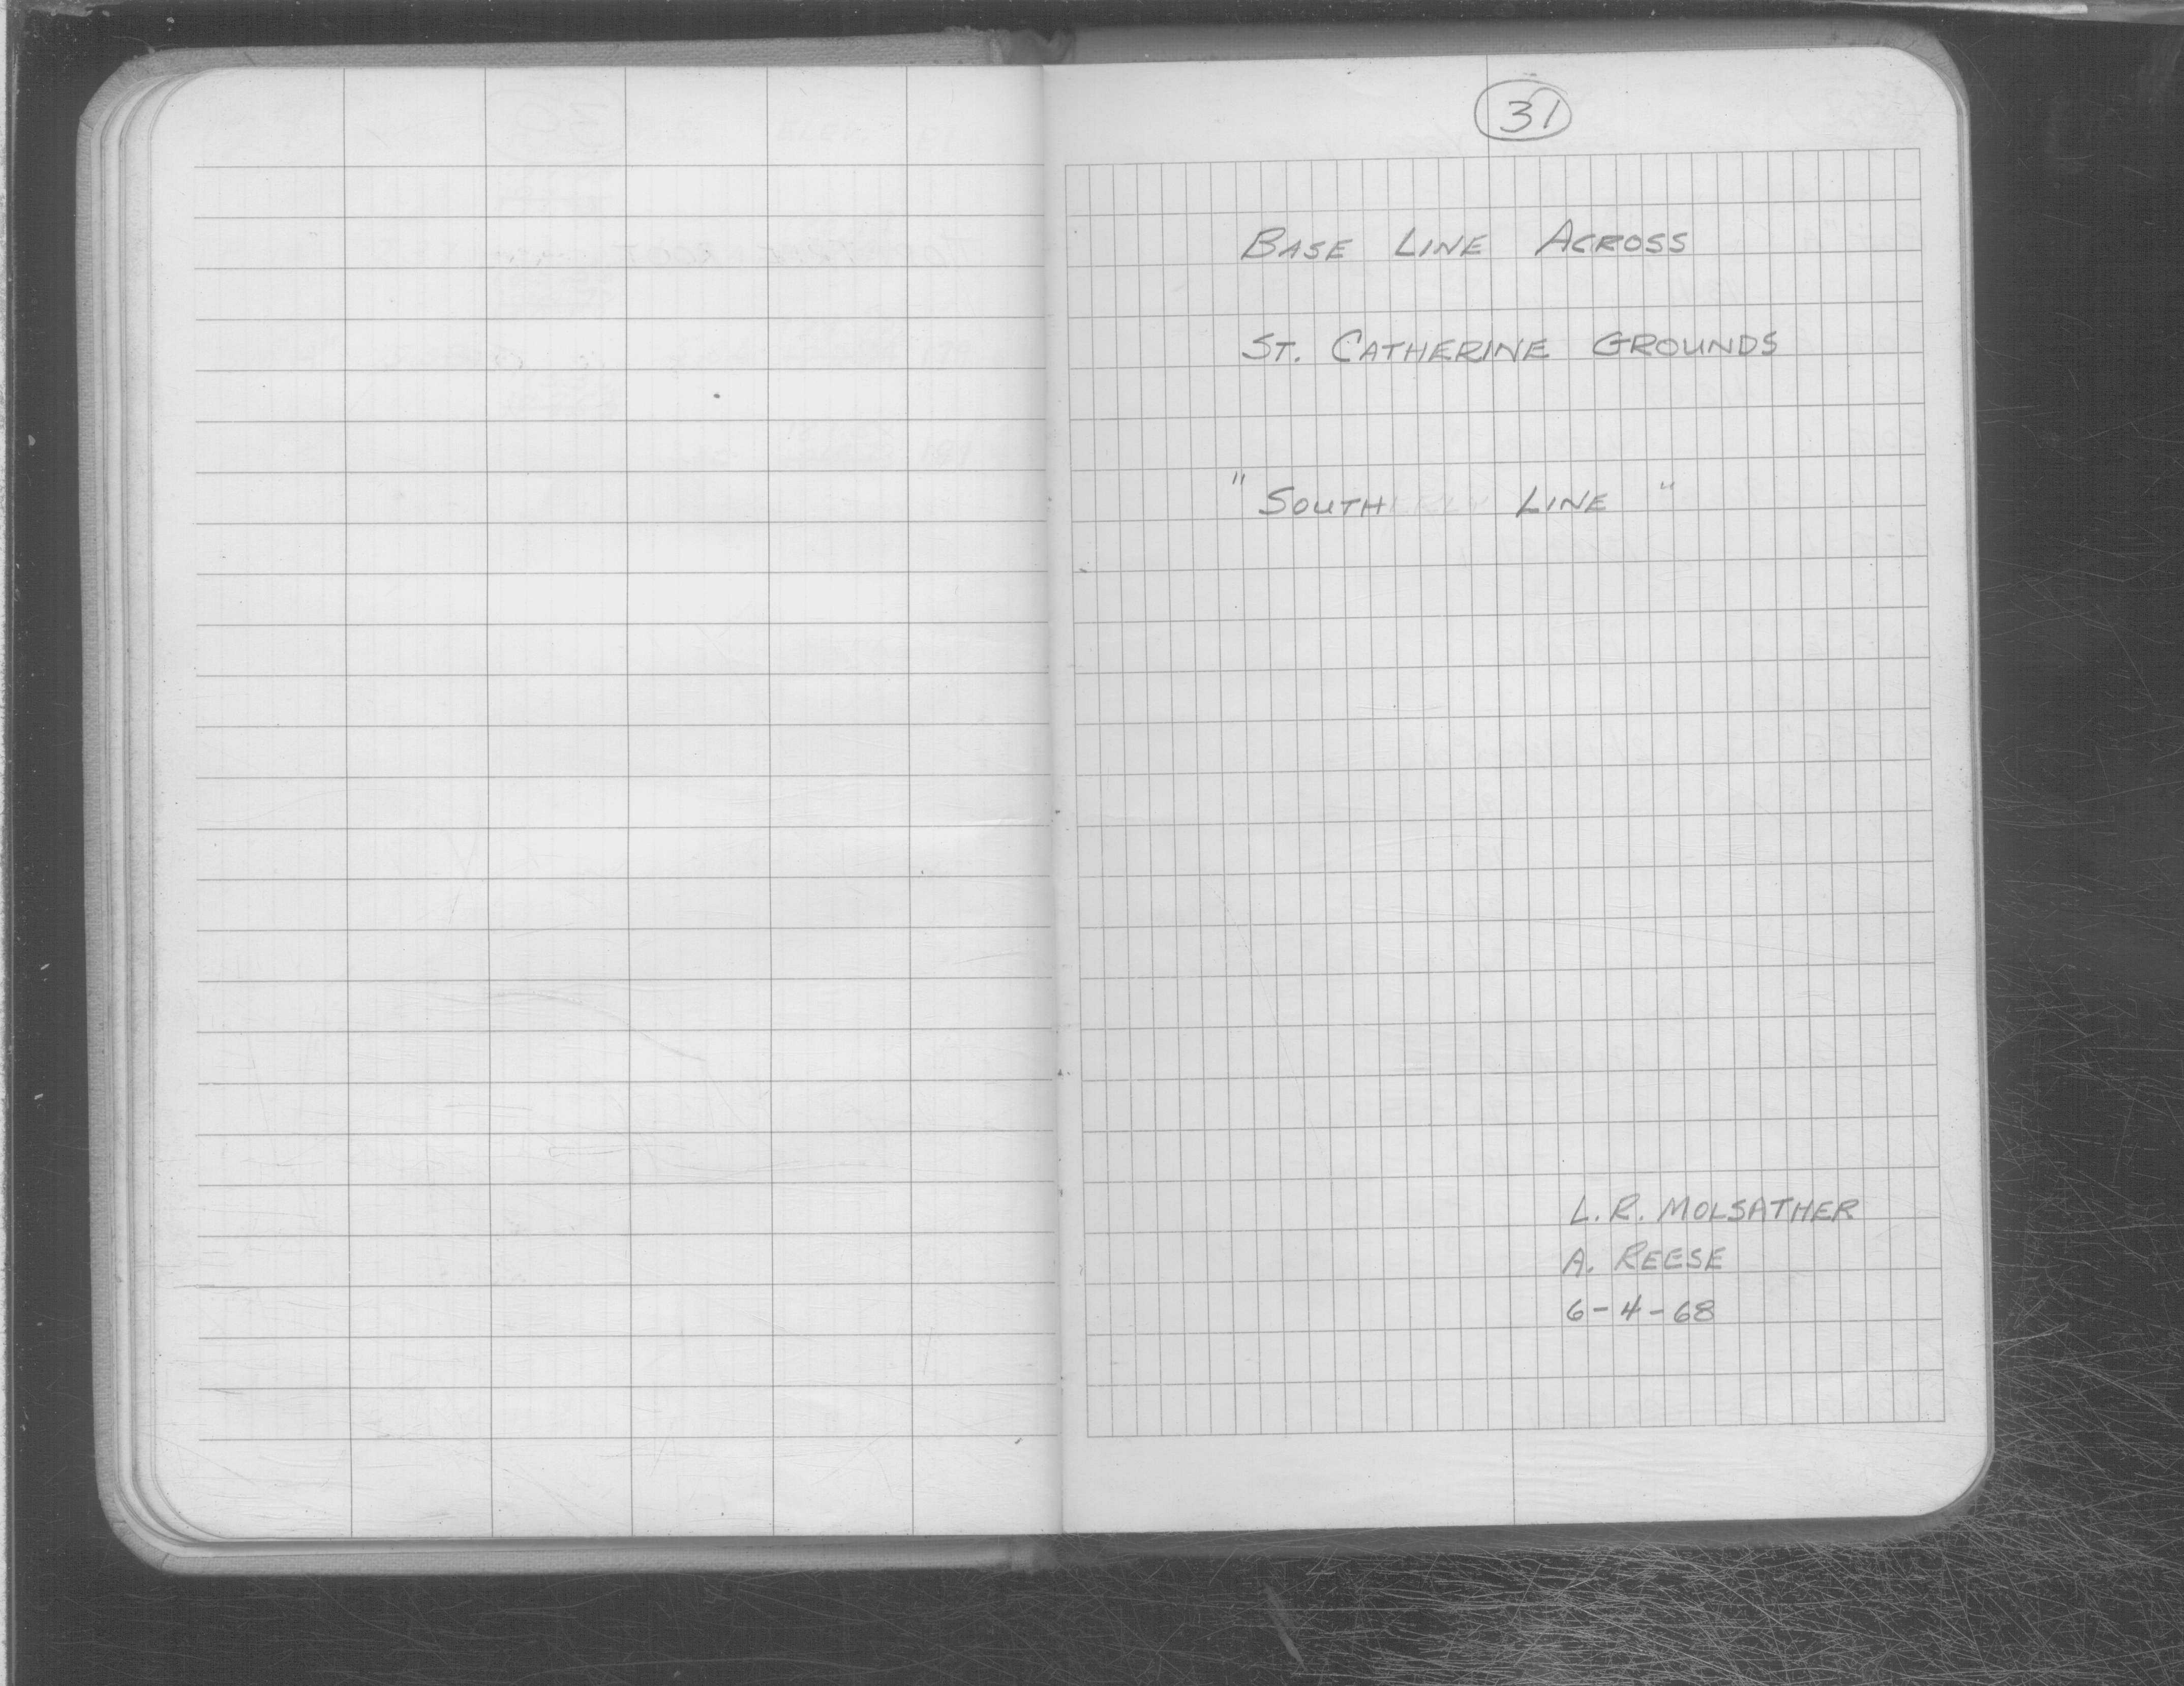 31
BASE LINE ACROSS
ST. CATHERINE GROUNDS
" SOUTH LINE "
L. R. MOLSATHER
A. REESE
6-4-68